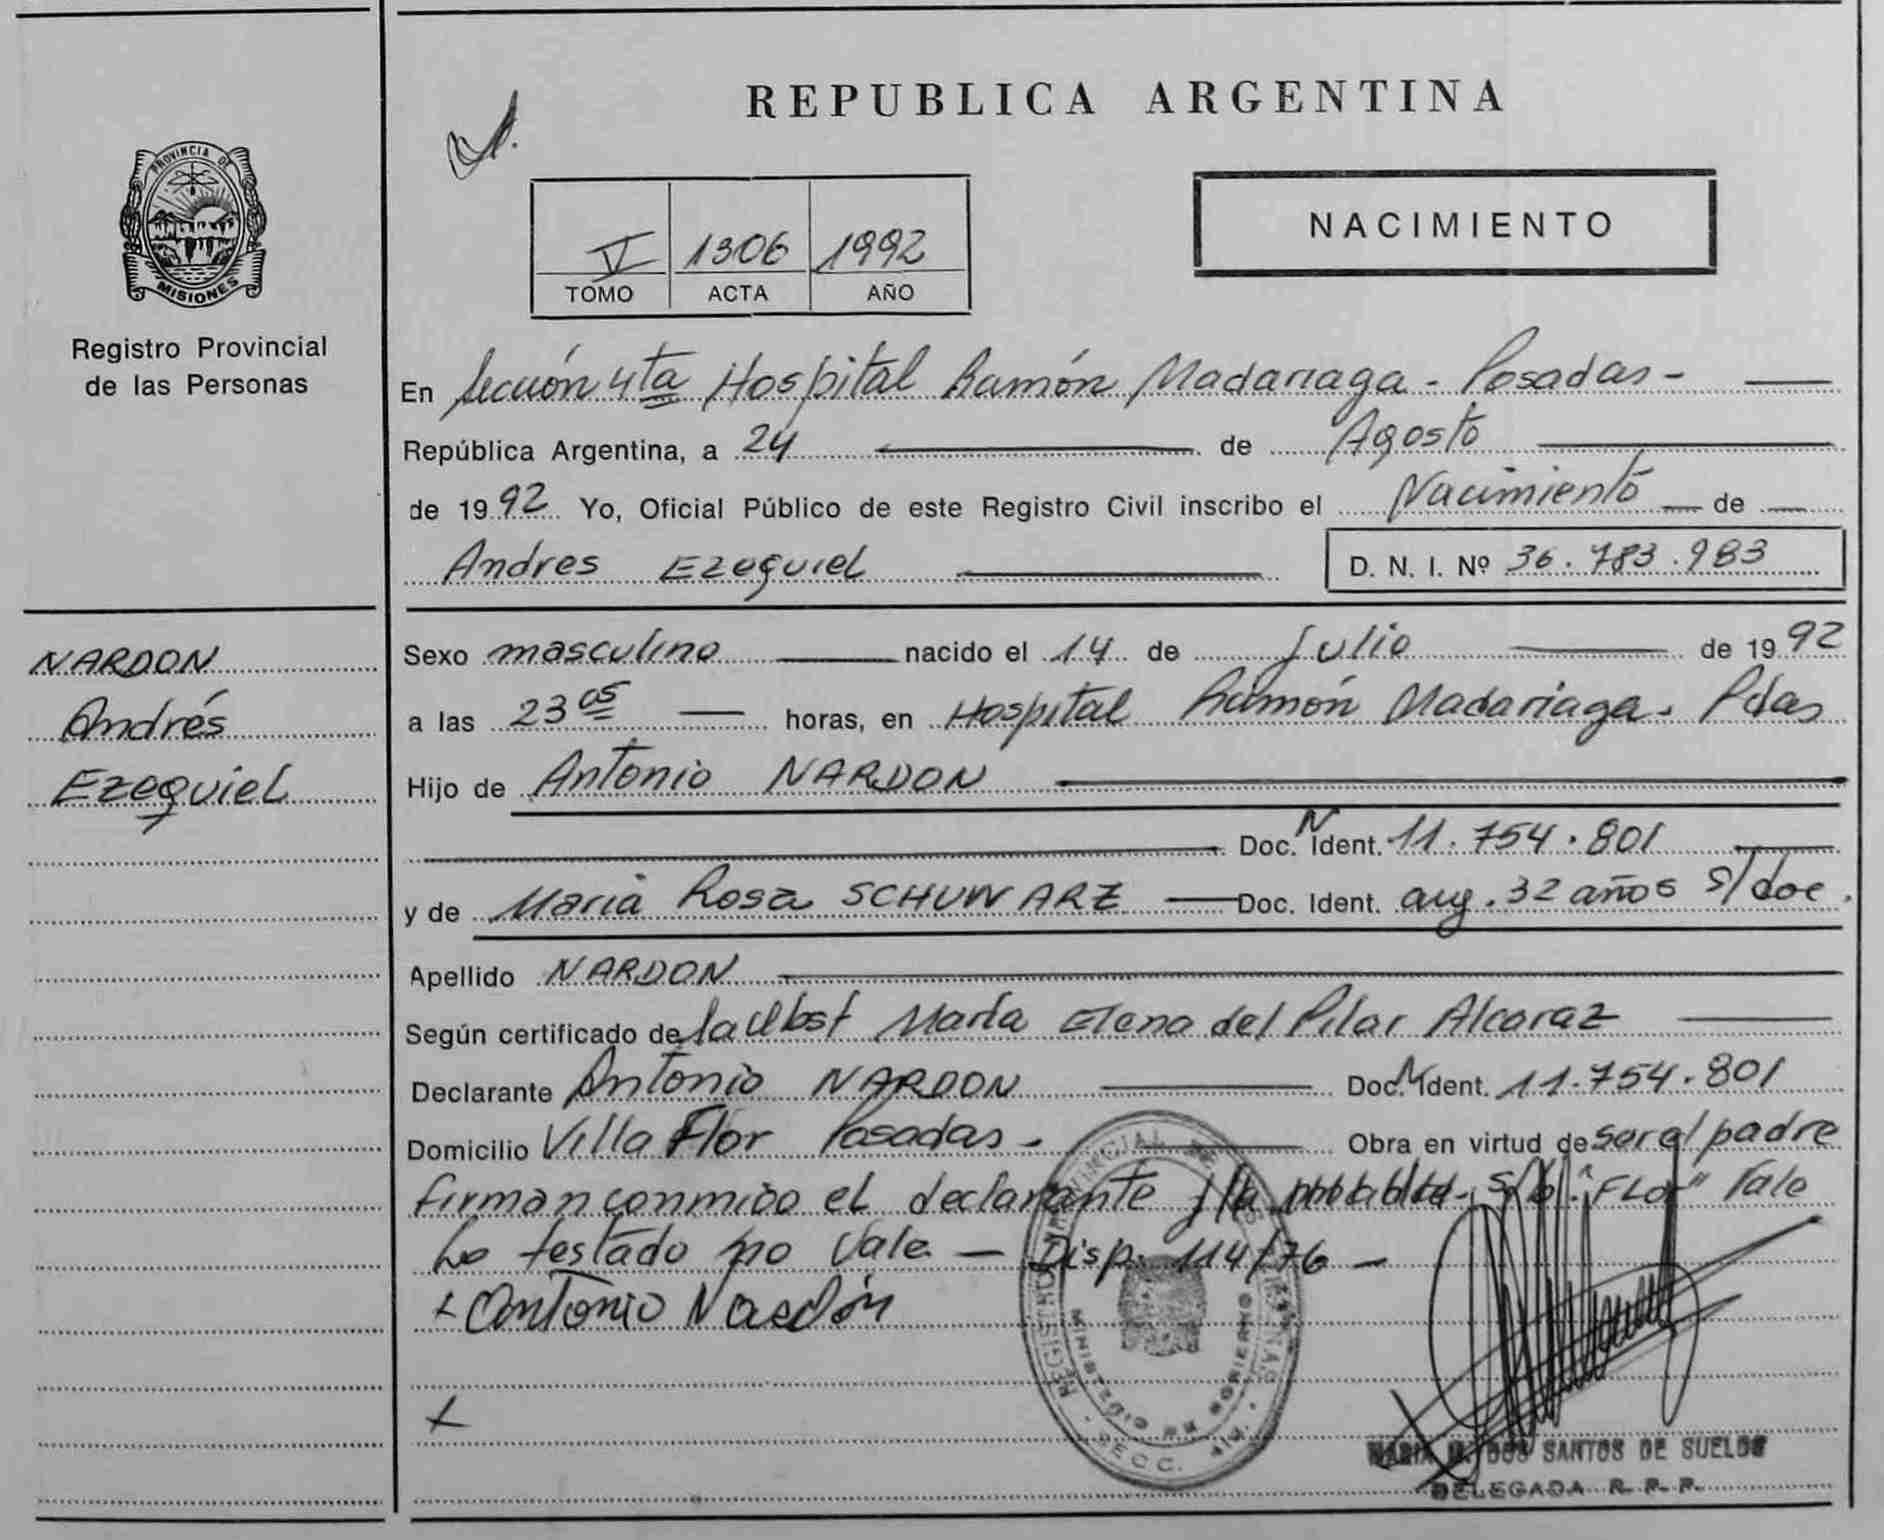 REPUBLICA ARGENTINA
PROVINCIA DE
MISIONES
Registro Provincial
de las Personas
NACIMIENTO
V 1306 1992
TOMO ACTA AÑO
En Sección 4ta Hospital Ramón Madariaga - Posadas -
República Argentina, a 24 de Agosto
de 1992 Yo, Oficial Público de este Registro Civil inscribo el Nacimiento de
Andres Ezequiel D. N. I. Nº 36.783.983
NARDON
Andrés
Ezequiel
Sexo masculino nacido el 14 de Julio de 1992
a las 23 05 horas, en Hospital Ramón Madariaga. Pdas
Hijo de Antonio NARDON
Doc. N Ident. 11.754.801
y de Maria Rosa SCHUWARZ Doc. Ident. arg. 32 años s/doc.
Apellido NARDON
Según certificado de la Obst Marta Elena del Pilar Alcaraz
Declarante Antonio NARDON Doc. N Ident. 11.754.801
Domicilio Villa Flor Posadas - Obra en virtud de ser el padre
firman conmigo el declarante s/b. "FLor" Vale
Lo testado no vale - Disp. 114/76 -
x Antonio Nardón
x
REGISTRO PROVINCIAL DE LAS PERSONAS
MINISTERIO DE GOBIERNO
SECC. 4ta.
MARIA M. DOS SANTOS DE SUELDO
DELEGADA R. P. P.